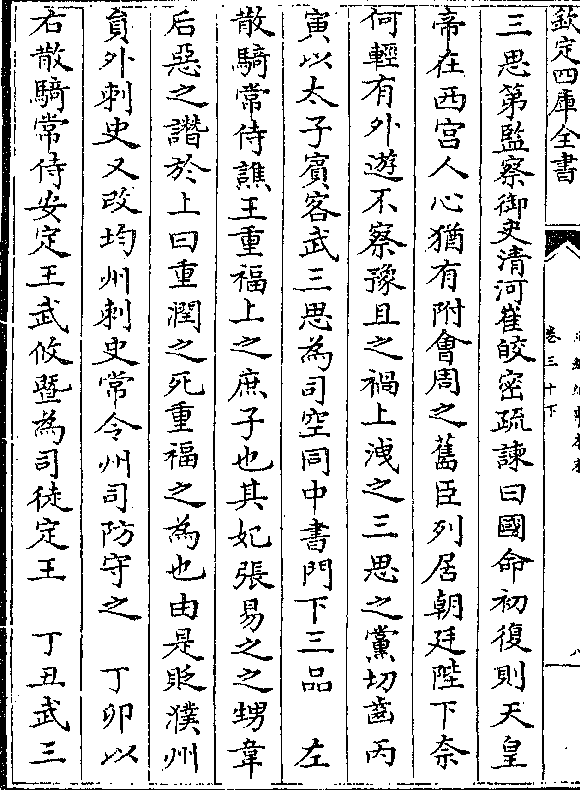 欽定四庫全書
卷三十下
三思第監察御史清河崔皎密疏諫曰國命初復則天皇
帝在西宫人心猶有附會周之舊臣列居朝廷陛下奈
何輕有外遊不察豫且之禍上洩之三思之黨切齒丙
寅以太子賓客武三思為司空同中書門下三品　左
散騎常侍譙王重福上之庶子也其妃張易之之甥韋
后惡之譖於上曰重潤之死重福之為也由是貶濮州
員外刺史又改均州刺史常令州司防守之　丁卯以
右散騎常侍安定王武攸暨為司徒定王　丁丑武三